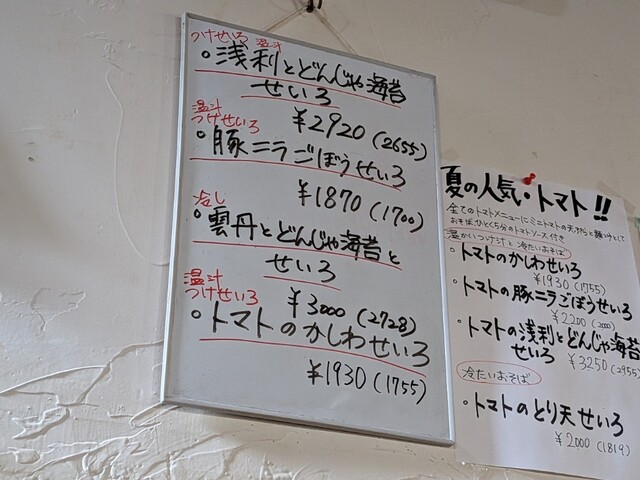 つけせいろ 温汁
・浅利とどんじゃ海苔
せいろ
¥2920(2655)
温汁
つけせいろ
・豚ニラごぼうせいろ
¥1870(1700)
冷し
・雲丹とどんじゃ海苔と
せいろ
¥3000(2728)
温汁
つけせいろ
・トマトのかしわせいろ
¥1930(1755)
夏の人気・トマト!!
全てのトマトメニューにミニトマトの天ぷらと麺つけとして
おそばひとくち分のトマトソース付き
温かいつけ汁と冷たいおそば
・トマトのかしわせいろ
¥1930(1755)
・トマトの豚ニラごぼうせいろ
¥2200(2000)
・トマトの浅利とどんじゃ海苔
せいろ ¥3250(2955)
冷たいおそば
・トマトのとり天せいろ
¥2000(1819)